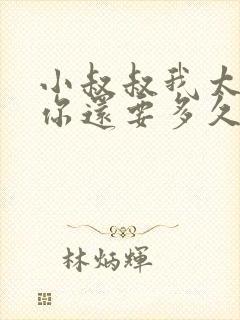 小叔叔我大
你還要多久
林炳輝